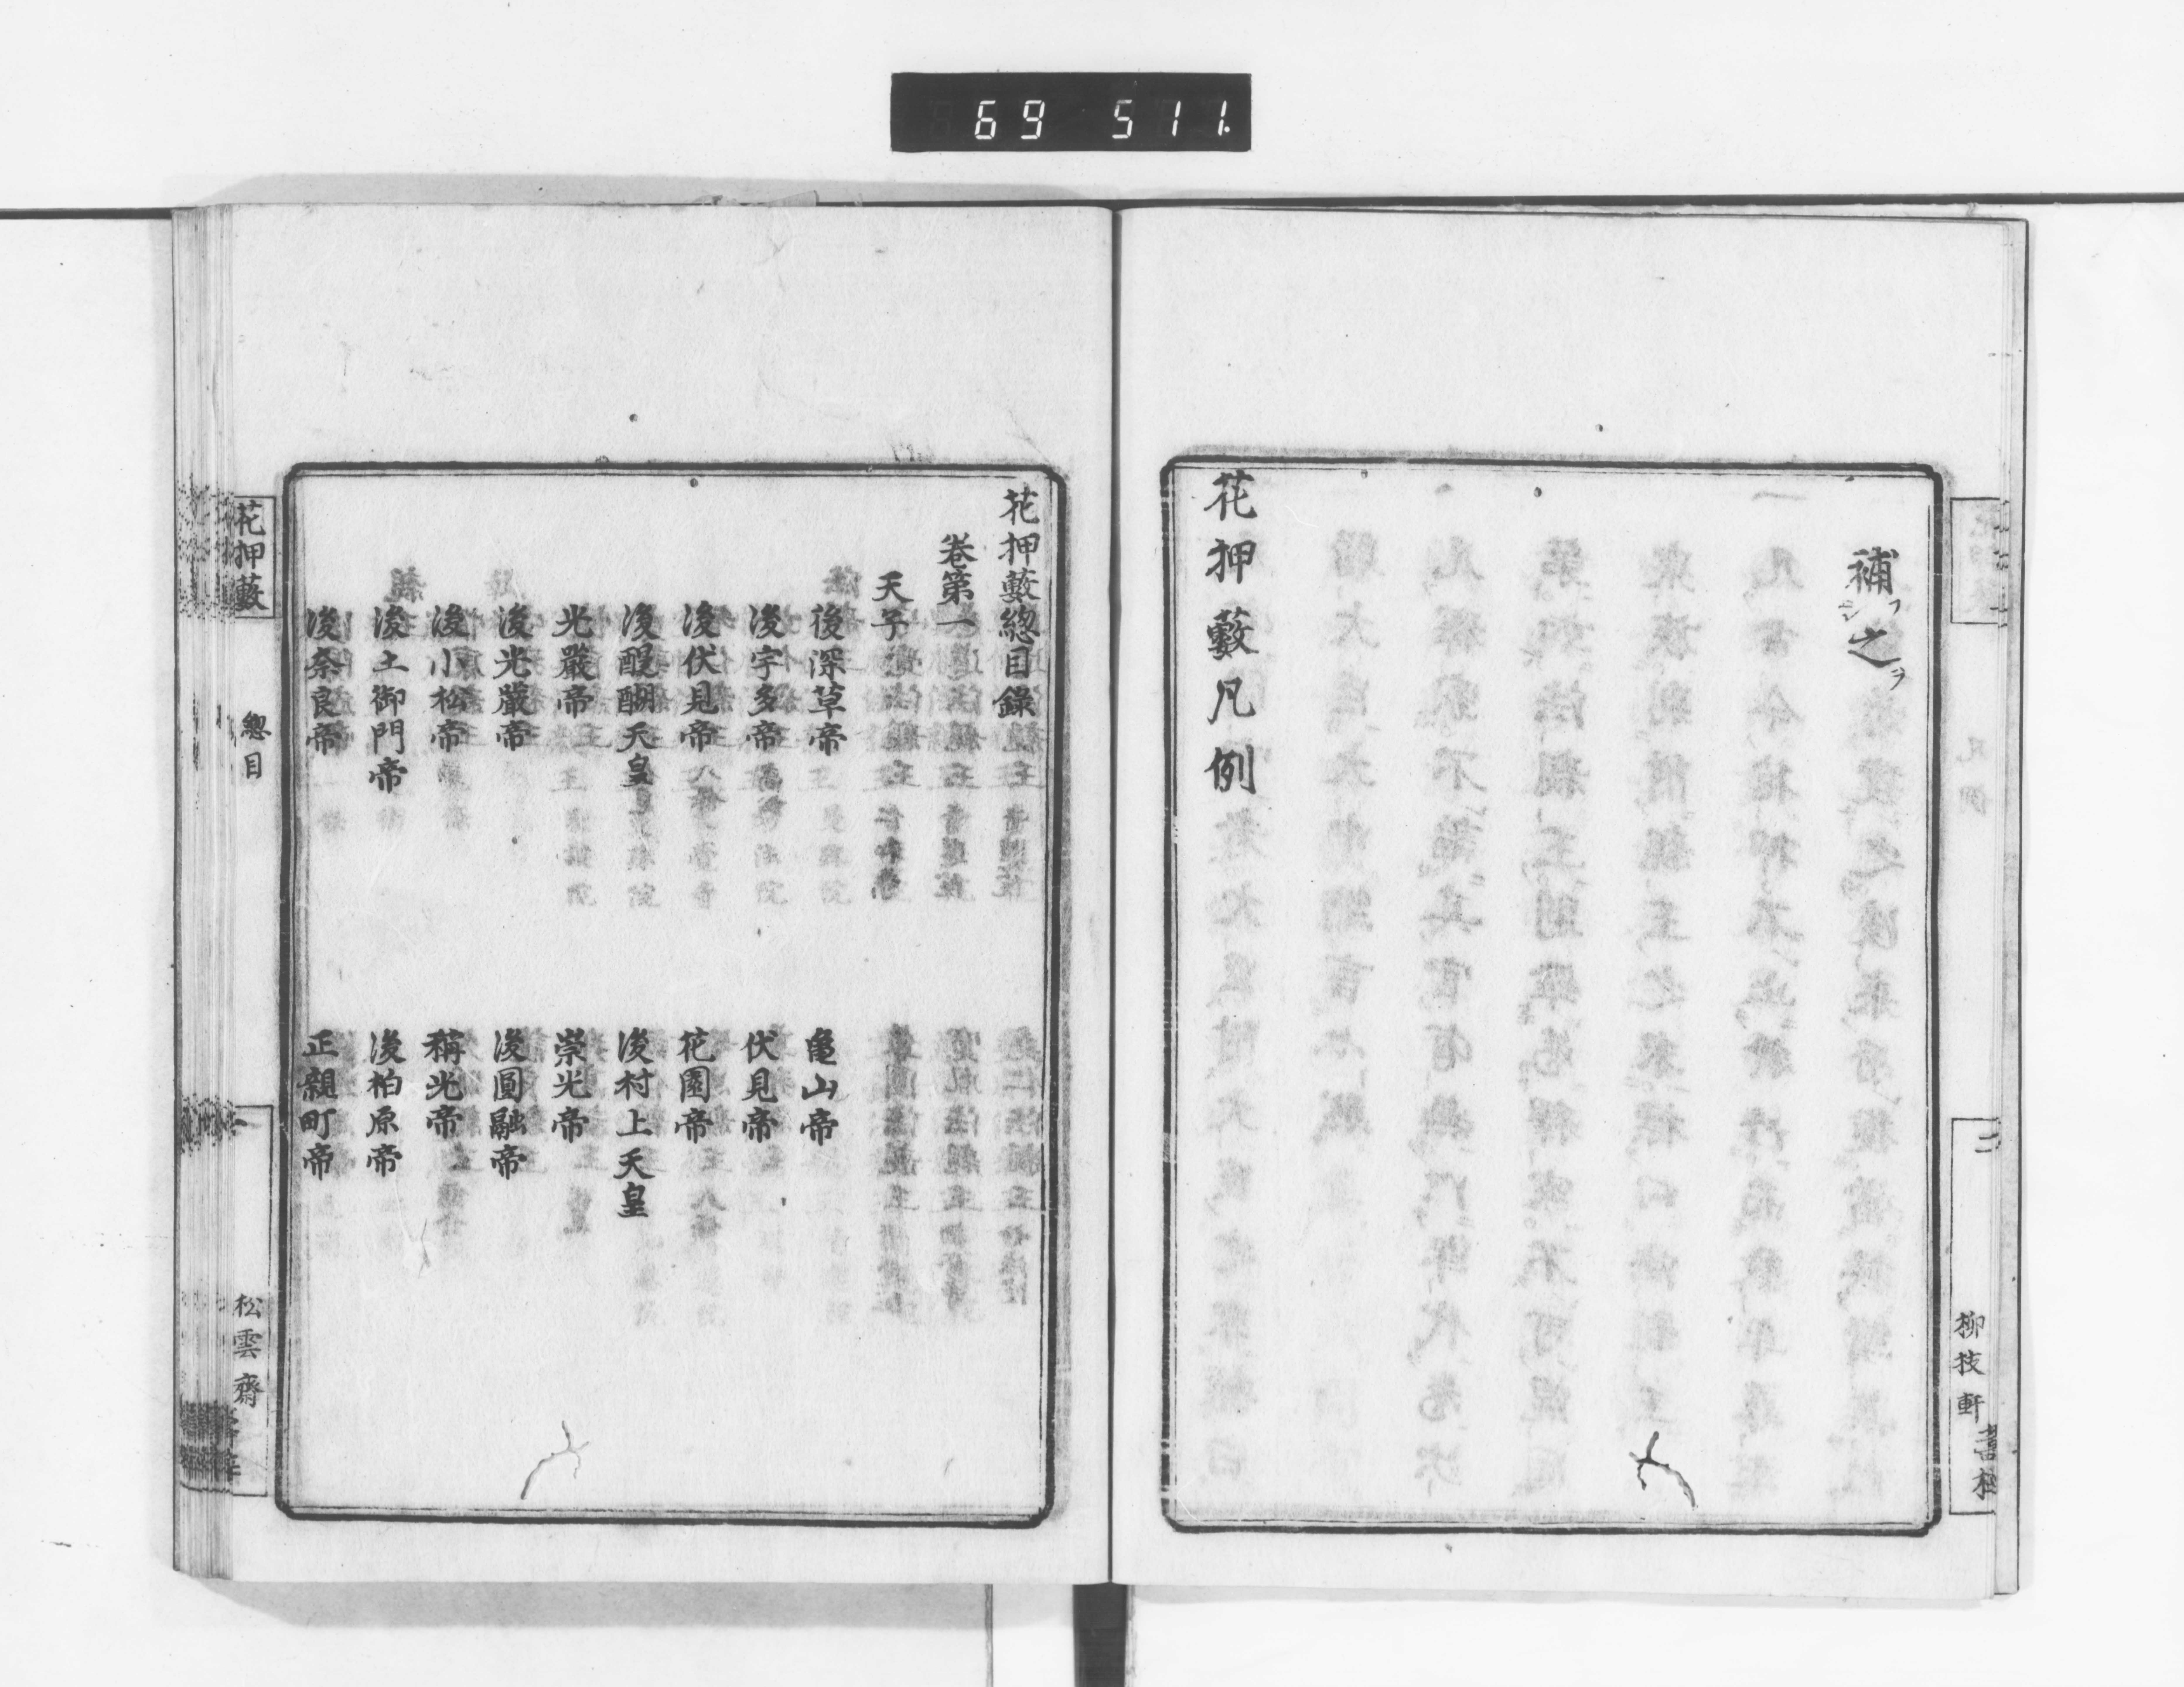 69 511.
補フ之ヲ
花押藪凡例
二
柳枝軒
花押藪總目錄
卷第一
天子
後深草帝
亀山帝
後宇多帝
伏見帝
後伏見帝
花園帝
後醍醐天皇
後村上天皇
光嚴帝
崇光帝
後光嚴帝
後圓融帝
後小松帝
稱光帝
後土御門帝
後柏原帝
後奈良帝
正親町帝
花押藪
總目
一
松雲齋